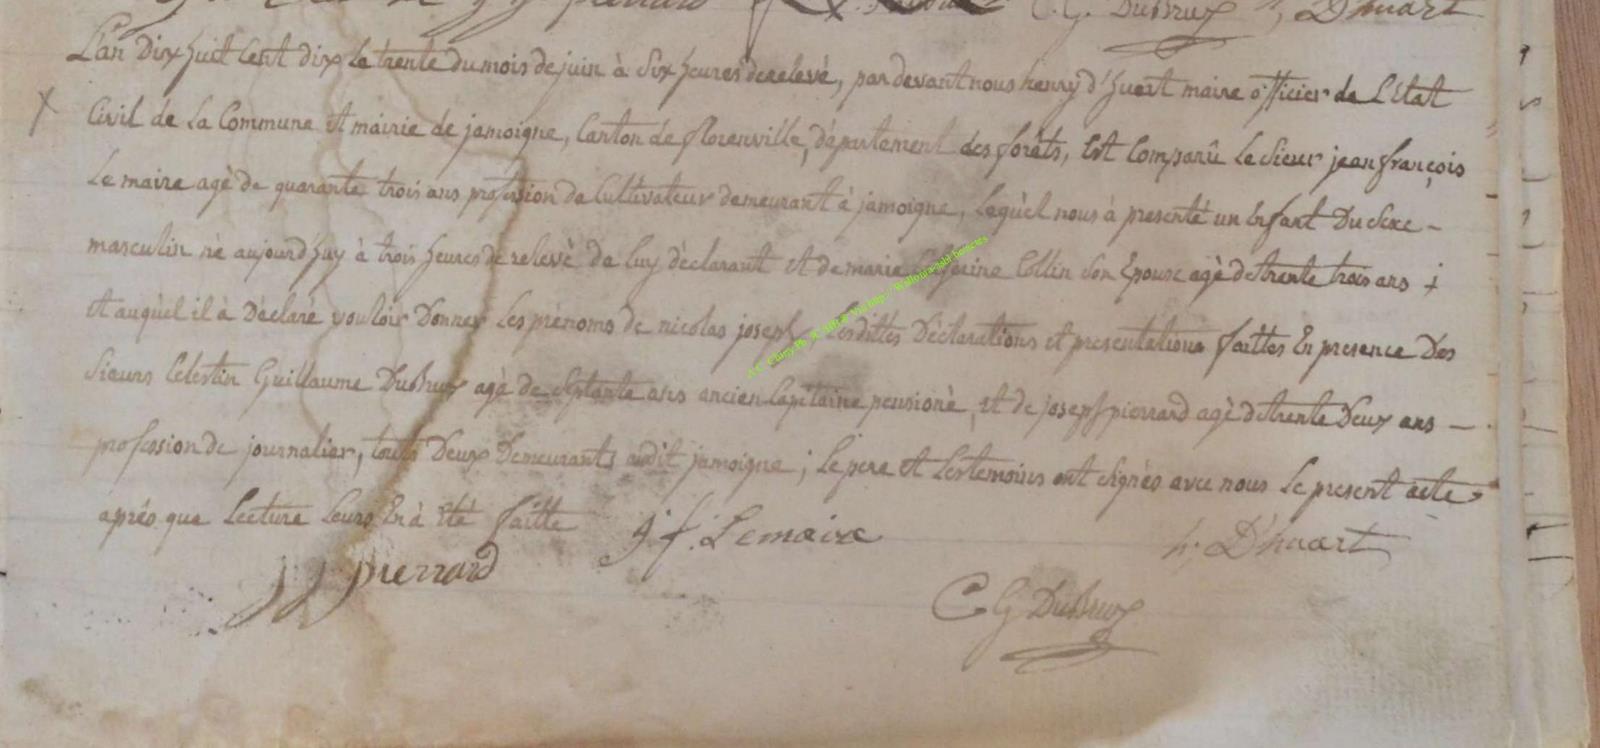 pierrard C. G. DuBrux D'huart
L'an Dix huit Cent dix le trente du mois de juin à Six heures de relevé, par devant nous henry d'huart maire officier de L'Etat
Civil de La Commune et mairie de jamoigne, Canton de florenville, département des forêts, Est Comparû Le Sieur jean françois
Le maire agè de quarante trois ans profession de Cultivateur demeurant à jamoigne, Lequèl nous à presenté un Enfant Du Sexe -
masculin né aujourd'huy à trois heures de relevè de luy déclarant et de marie Collin Son Epouse agè de trente trois ans +
et auquèl il à Déclaré vouloir Donner Les prénoms de nicolas joseph, Les dittes Déclarations et presentations faittes En presence Des
Sieurs Celestin Guillaume DuBrux agè de septante ans ancien Capitaine pensionè, et de joseph pierrard agè de trente Deux ans -
profession de journalier, touts Deux Demeurants audit jamoigne; Le pere et Les temoins ont signés avec nous Le present acte
aprés que Lecture Leurs En à Eté faitte
j. f. Lemaire
h. D'huart
J J pierrard
C G DuBrux